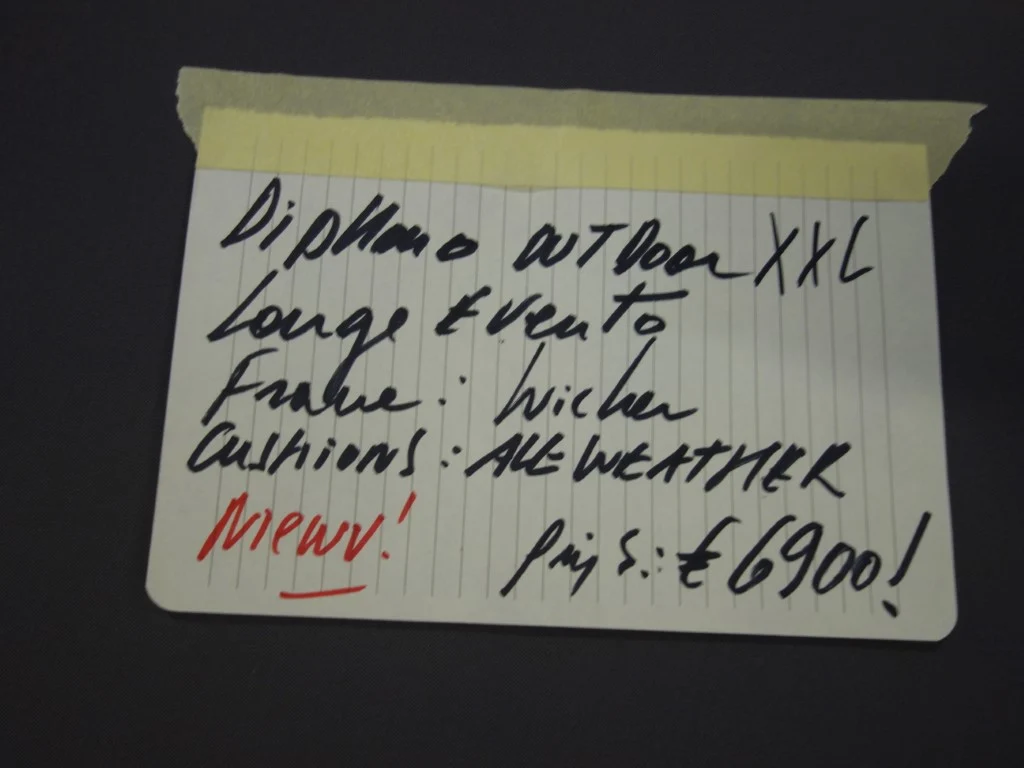 Diphano OUTDOOR XXL
Lounge Evento
Frame: Wicker
Cushions: ALLWEATHER
Nieuw! Prijs.: € 6900!